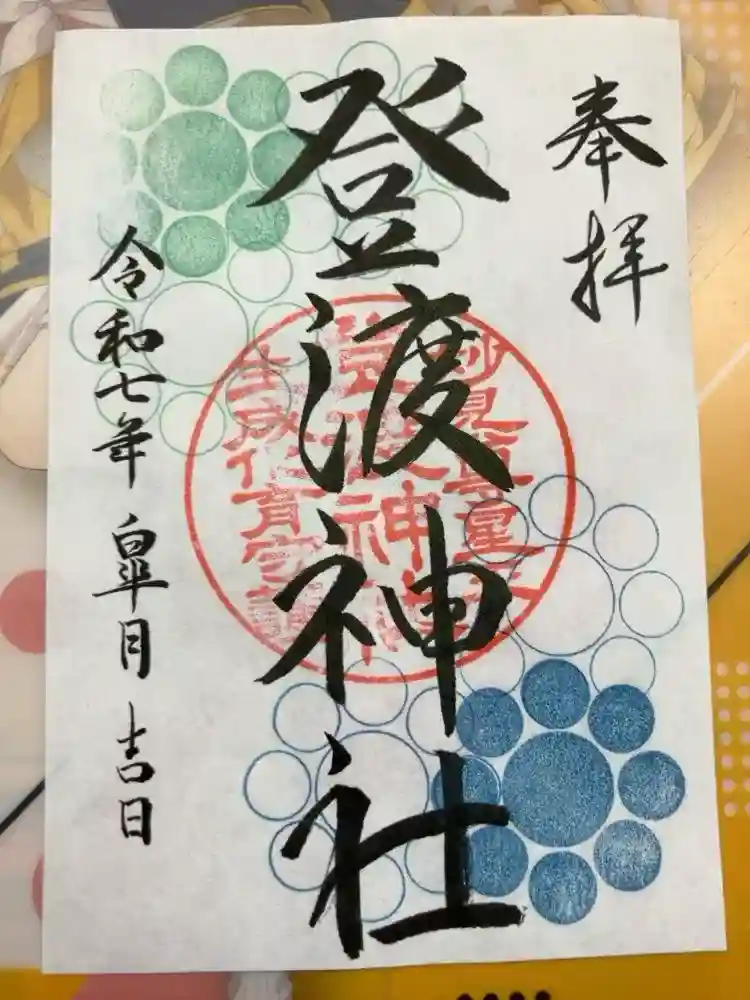 奉拝
登渡神社
令和七年 皐月 吉日